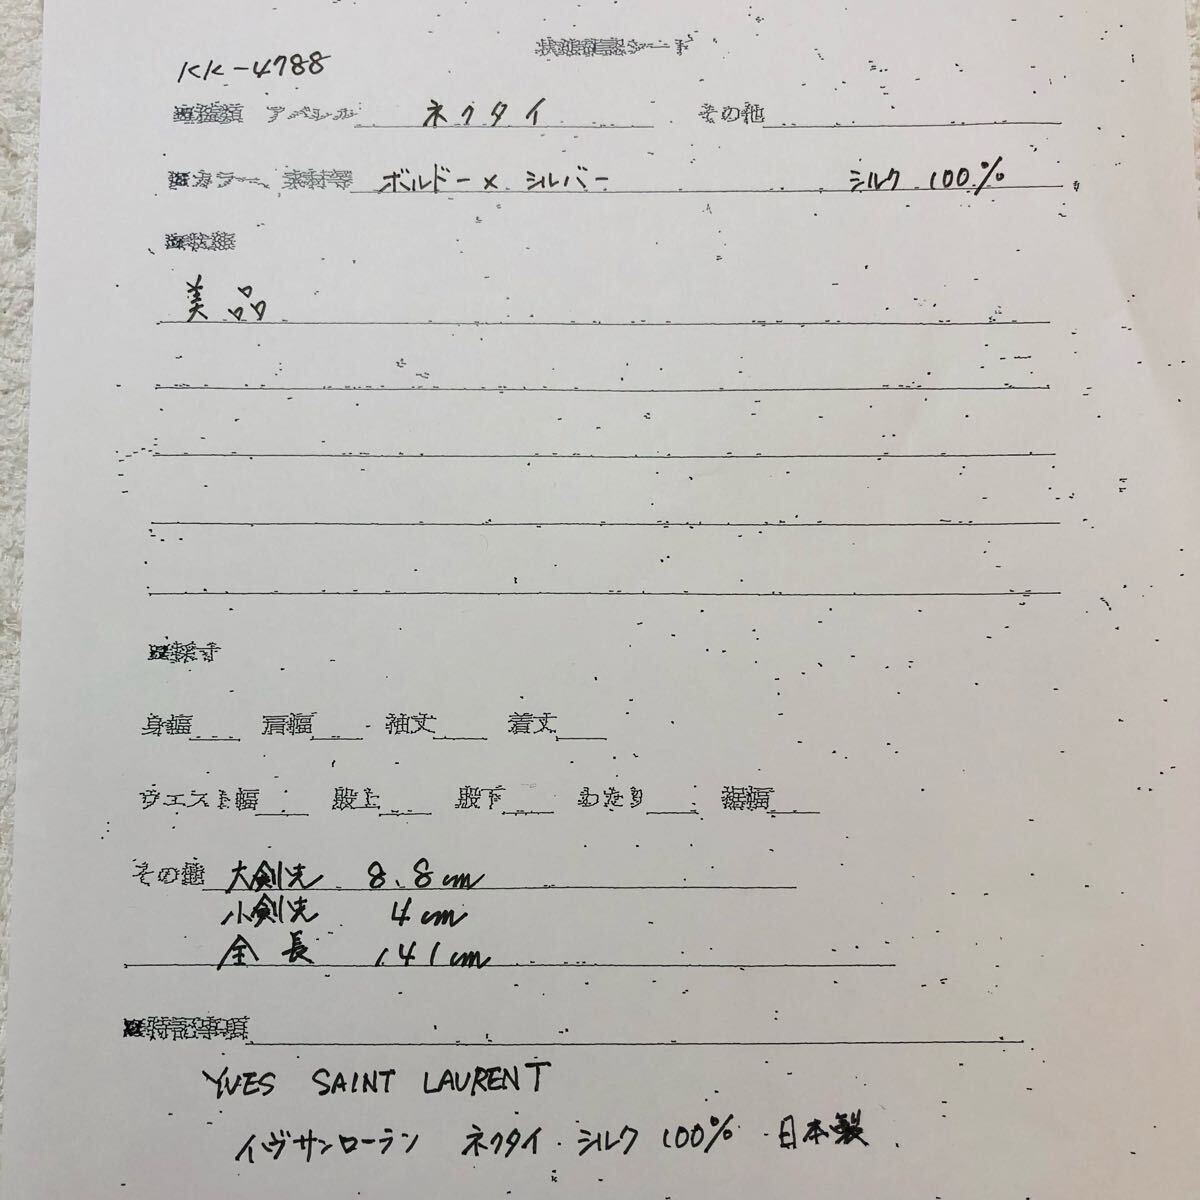 状態確認シート
KK-4788
種類 アパレル ネクタイ その他
カラー、素材等 ボルドー×シルバー シルク 100%
状態
美品
採寸
身幅 肩幅 袖丈 着丈
ウエスト幅 股上 股下 わたり 裾幅
その他 大剣先 8.8cm
小剣先 4cm
全長 141cm
特記事項
YVES SAINT LAURENT
イヴサンローラン ネクタイ シルク 100% 日本製